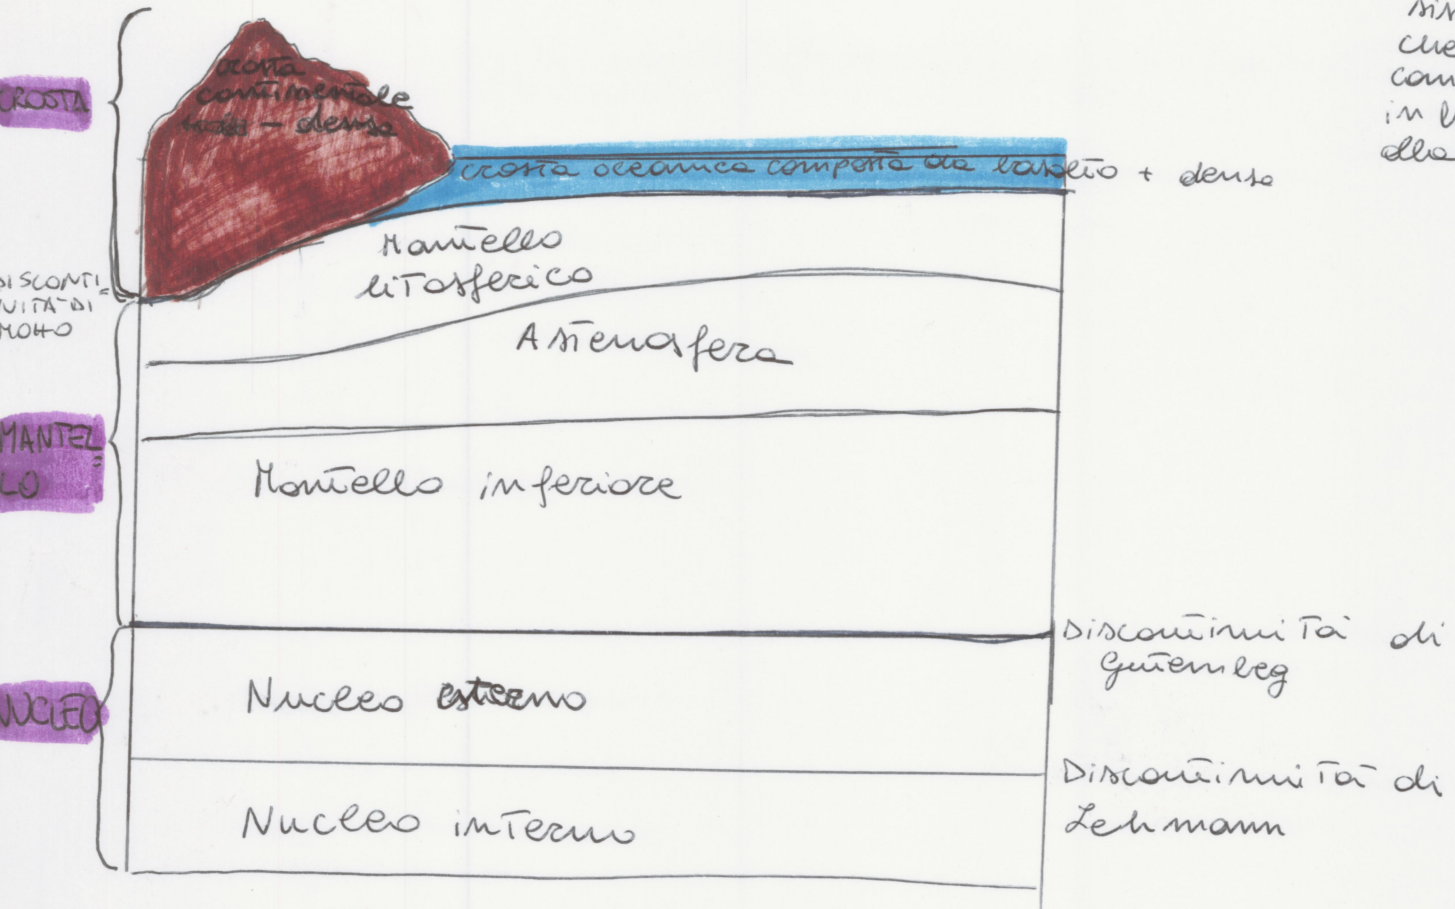 sin
che
com
in b
alla
CROSTA
crosta
continentale
- densa
crosta oceanica composta da basalto + densa
Mantello
litosferico
DISCONTI=
NUITÀ DI
MOHO
Astenosfera
MANTEL=
LO
Mantello inferiore
Discontinuità di
Gutembeg
NUCLEO
Nucleo esterno
Discontinuità di
Lehmann
Nucleo interno